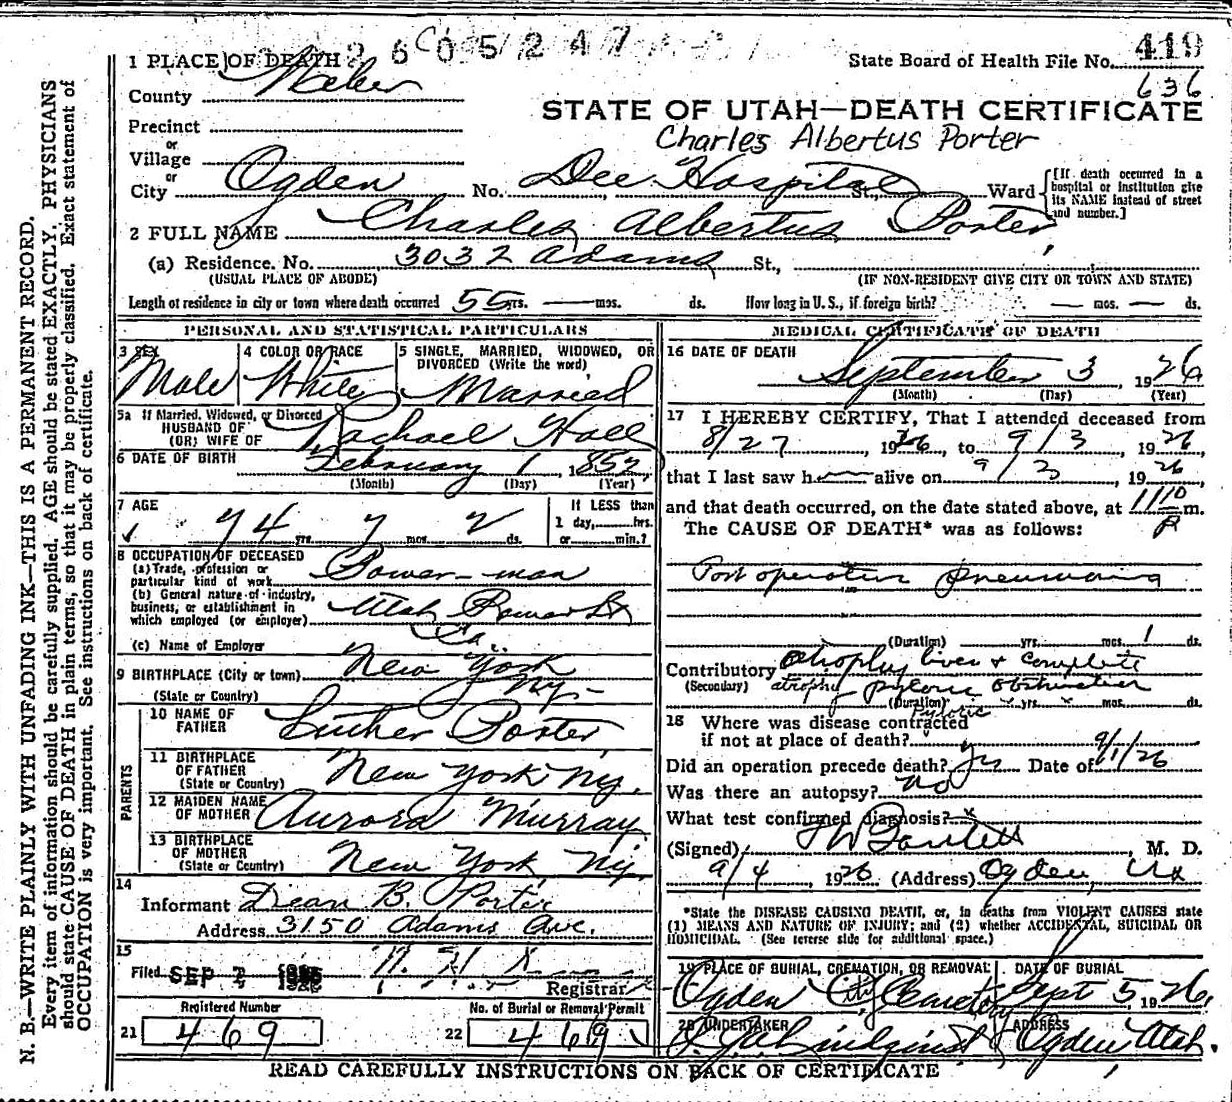 419
2605247
1 PLACE OF DEATH
State Board of Health File No.
636
County Weber
STATE OF UTAH—DEATH CERTIFICATE
Precinct
or
Charles Albertus Porter
Village
or
City Ogden No. Dee Hospital St., Ward
[If death occurred in a hospital or institution give its NAME instead of street and number.]
2 FULL NAME Charles Albertus Porter
(a) Residence. No. 3032 Adams St.,
(USUAL PLACE OF ABODE) (IF NON-RESIDENT GIVE CITY OR TOWN AND STATE)
Length of residence in city or town where death occurred 55 yrs. — mos. ds. How long in U. S., if foreign birth? — mos. — ds.
PERSONAL AND STATISTICAL PARTICULARS
3 SEX Male
4 COLOR OR RACE White
5 SINGLE, MARRIED, WIDOWED, OR DIVORCED (Write the word) Married
5a If Married, Widowed, or Divorced
HUSBAND OF
(OR) WIFE OF Rachael Hall
6 DATE OF BIRTH February 1, 1852
(Month) (Day) (Year)
7 AGE 74 yrs. 7 mos. 2 ds.
If LESS than
1 day,......hrs.
or......min.?
8 OCCUPATION OF DECEASED
(a) Trade, profession or
particular kind of work Power-man
(b) General nature of industry,
business, or establishment in
which employed (or employer) Utah Power Lt
(c) Name of Employer Co.
9 BIRTHPLACE (City or town) New York
(State or Country) N.Y.
PARENTS
10 NAME OF FATHER Luther Porter
11 BIRTHPLACE OF FATHER (State or Country) New York N.Y.
12 MAIDEN NAME OF MOTHER Aurora Murray
13 BIRTHPLACE OF MOTHER (State or Country) New York N.Y.
14
Informant Dean B. Porter
Address 3150 Adams Ave.
15
Filed SEP 7 1926
Registrar
Registered Number
21 469
No. of Burial or Removal Permit
22 469
MEDICAL CERTIFICATE OF DEATH
16 DATE OF DEATH
September 3, 1926
(Month) (Day) (Year)
17 I HEREBY CERTIFY, That I attended deceased from
8/27, 1926, to 9/3 1926
that I last saw h alive on 9/3, 1926,
and that death occurred, on the date stated above, at 1110 P m.
The CAUSE OF DEATH* was as follows:
Post operative pneumonia
(Duration) yrs. mos. 1 ds.
Contributory atrophy liver & complete
(Secondary) atrophy pyloric obstruction
(Duration) yrs. mos. ds.
pyloric
18 Where was disease contracted
if not at place of death?
Did an operation precede death? yes Date of 9/1/26
Was there an autopsy? no
What test confirmed diagnosis?
(Signed) , M. D.
9/4, 1926 (Address) Ogden, Ut
*State the DISEASE CAUSING DEATH, or, in deaths from VIOLENT CAUSES state
(1) MEANS AND NATURE OF INJURY; and (2) whether ACCIDENTAL, SUICIDAL OR
HOMICIDAL. (See reverse side for additional space.)
19 PLACE OF BURIAL, CREMATION, OR REMOVAL DATE OF BURIAL
Ogden City Cemetery Sept 5, 1926
20 UNDERTAKER ADDRESS
Lindquist Ogden, Utah.
READ CAREFULLY INSTRUCTIONS ON BACK OF CERTIFICATE
N. B.—WRITE PLAINLY WITH UNFADING INK—THIS IS A PERMANENT RECORD.
Every item of information should be carefully supplied. AGE should be stated EXACTLY. PHYSICIANS
should state CAUSE OF DEATH in plain terms, so that it may be properly classified. Exact statement of
OCCUPATION is very important. See instructions on back of certificate.